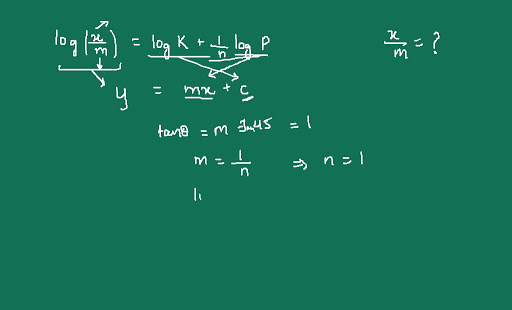 log(x/m) = log K + 1/n log P
x/m = ?
y = mx + c
tanθ = m = tan45 = 1
m = 1/n ⇒ n = 1